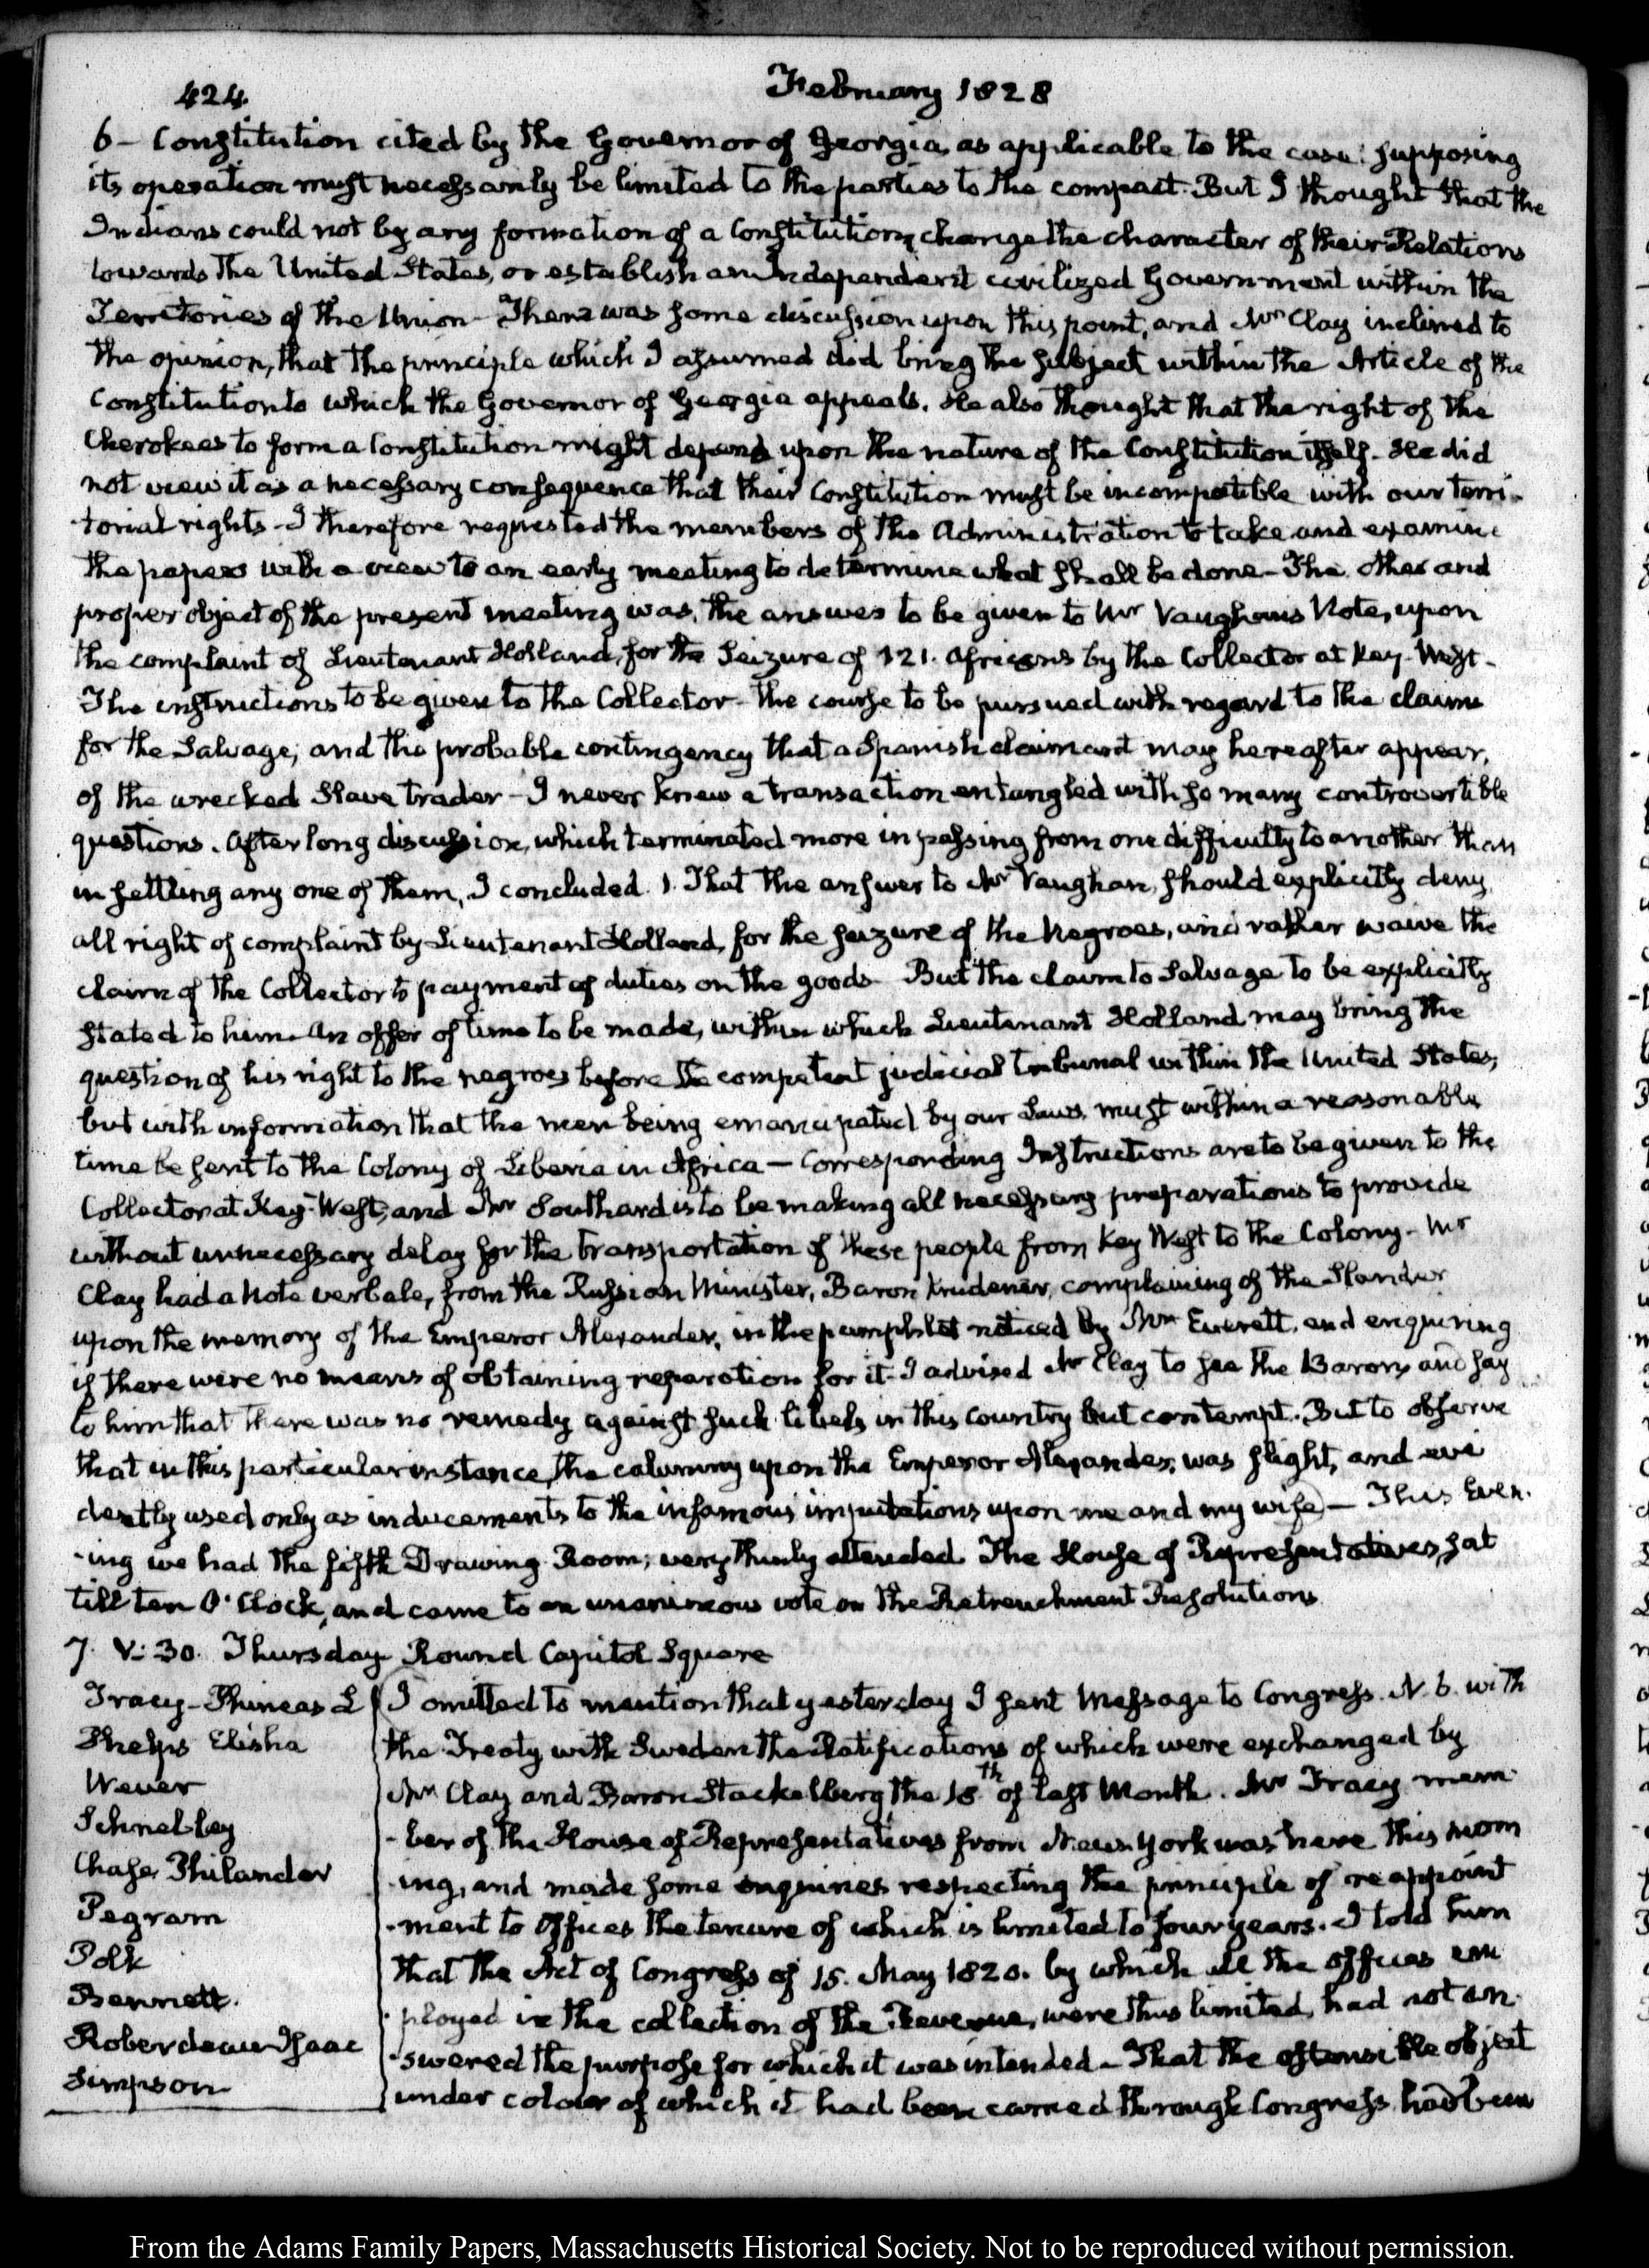 424.
February 1828
6 – Constitution cited by the Governor of Georgia, as applicable to the case: supposing
its operation must necessarily be limited to the parties to the compact. But I thought that the
Indians could not by any formation of a Constitution, change the character of their Relations
towards the United States, or establish an Independent civilized Government within the
Territories of the Union – There was some discussion upon this point, and Mr Clay inclined to
the opinion, that the principle which I assumed did bring the subject within the Article of the
Constitution to which the Governor of Georgia appeals. He also thought that the right of the
Cherokees to form a Constitution might depend upon the nature of the Constitution itself. He did
not view it as a necessary consequence that their Constitution must be incompatible with our terri-
-torial rights – I therefore requested the members of the Administration to take and examine
the papers with a view to an early meeting to determine what shall be done – The other and
proper object of the present meeting was, the answer to be given to Mr Vaughan's Note, upon
the complaint of Lieutenant Holland, for the Seizure of 121. Africans by the Collector at Key-West –
The instructions to be given to the Collector – the course to be pursued with regard to the claim
for the Salvage; and the probable contingency that a Spanish claimant may hereafter appear,
of the wrecked Slave trader – I never knew a transaction entangled with so many controvertible
questions. After long discussion, which terminated more in passing from one difficulty to another than
in settling any one of them, I concluded. 1. That the answer to Mr Vaughan, should explicitly deny
all right of complaint by Lieutenant Holland, for the seizure of the Negroes, and rather waive the
claim of the Collector to payment of duties on the goods – But the claim to Salvage to be explicitly
stated to him. An offer of time to be made, within which Lieutenant Holland may bring the
question of his right to the negroes before the competent judicial tribunal within the United States;
but with information that the men being emancipated by our Laws, must within a reasonable
time be sent to the Colony of Liberia in Africa – Corresponding Instructions are to be given to the
Collector at Key-West, and Mr Southard is to be making all necessary preparations to provide
without unnecessary delay for the transportation of these people from Key West to the Colony – Mr
Clay had a Note verbale, from the Russian Minister, Baron Krudener, complaining of the Slander
upon the memory of the Emperor Alexander, in the pamphlet noticed by Mr Everett, and enquiring
if there were no means of obtaining reparation for it. I advised Mr Clay to see the Baron, and say
to him that there was no remedy against such libels in this Country but contempt. But to observe
that in this particular instance, the calumny upon the Emperor Alexander, was slight, and evi
dently used only as inducements to the infamous imputations upon me and my wife – This Even-
-ing we had the fifth Drawing Room; very thinly attended. The House of Representatives, sat
till ten O'Clock, and came to an unanimous vote on the Retrenchment Resolutions
7. V: 30. Thursday Round Capitol Square
Tracy – Phineas L
Phelps Elisha
Wever
Schnebley
Chase Philander
Pegram
Polk
Bennett.
Roberdeau Isaac
Simpson
I omitted to mention that yesterday I sent Message to Congress. N. 6. with
the Treaty with Sweden the Ratifications of which were exchanged by
Mr Clay and Baron Stackelberg, the 18th of last Month. Mr Tracy mem-
-ber of the House of Representatives from New-York was here this morn
-ing, and made some enquiries respecting the principle of reappoint
-ment to Offices the tenure of which is limited to four years. I told him
that the Act of Congress of 15. May 1820. by which all the offices em
-ployed in the collection of the Revenue, were thus limited, had not an-
-swered the purpose for which it was intended – That the ostensible object
under colour of which it had been carried through Congress had been
From the Adams Family Papers, Massachusetts Historical Society. Not to be reproduced without permission.